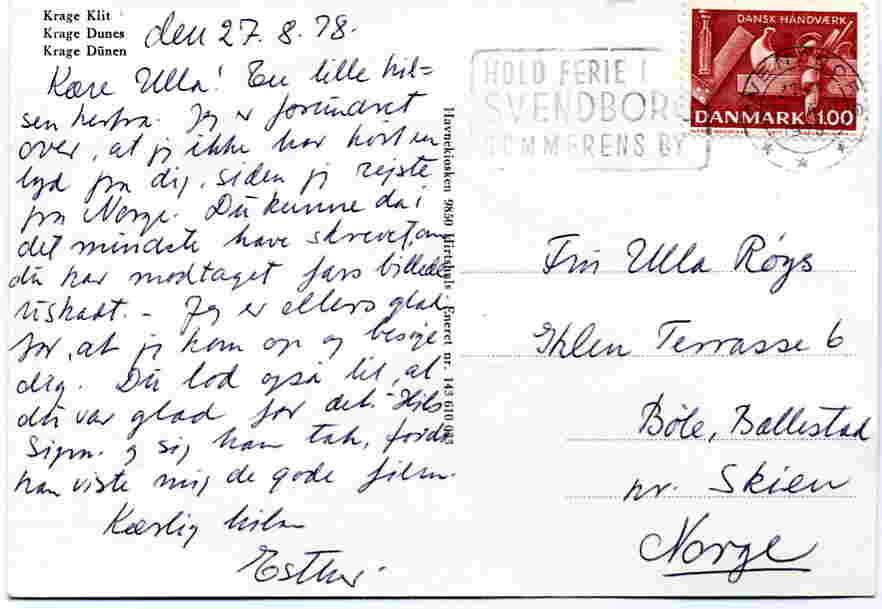 Krage Klit
Krage Dunes
Krage Dünen
den 27.8.78.
Kære Ulla! En lille hil=
sen herfra. Jeg er forundret
over, at jeg ikke har hørt en
lyd fra dig, siden jeg rejste
fra Norge. Du kunne da i
det mindste have skrevet, om
du har modtaget fars billede
uskadt. - Jeg er ellers glad
for, at jeg kom op og besøge
dig. Du lod også til, at
du var glad for det. Hils
Sigm. og sig ham tak, fordi
han viste mig de gode film.
Kærlig hilsn
Esther.
Havnekiosken 9850 Hirtshals - Eneret nr. 143 610 083
HOLD FERIE I
SVENDBORG
SOMMERENS BY
DANSK HÅNDVÆRK
DANMARK 1.00
Fru Ulla Røys
Ihlen Terrasse 6
Böle, Ballestad
nr. Skien
Norge